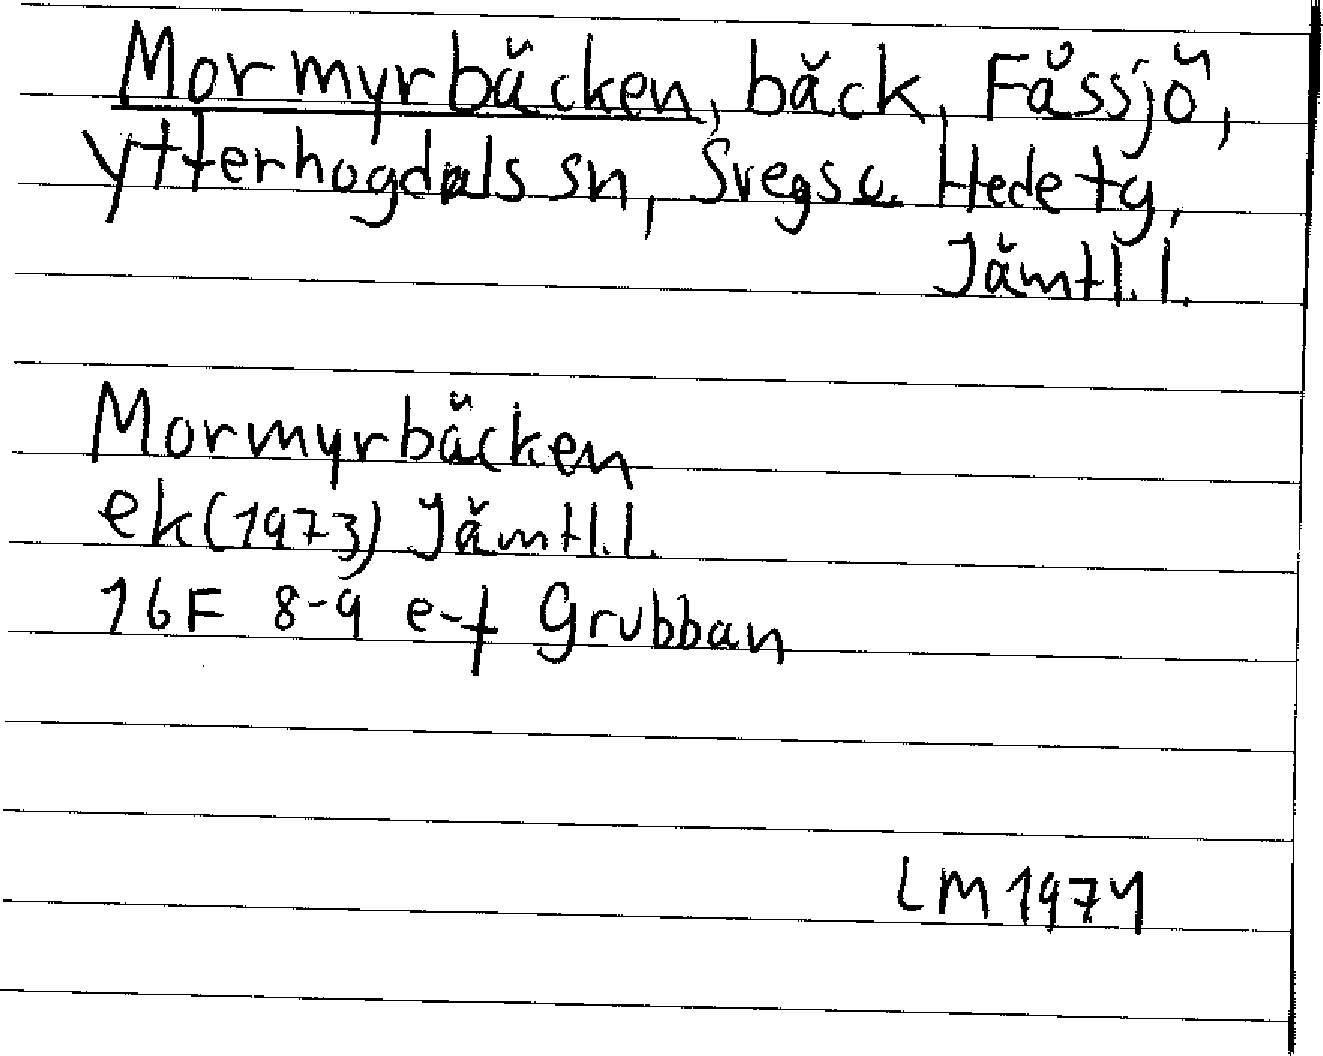 Mormyrbäcken, bäck, Fåssjö,
Ytterhogdals sn, Svegs o. Hede tg,
Jämtl. l.
Mormyrbäcken
ek (1973) Jämtl.l.
16F 8-9 e-f Grubban
LM 1974